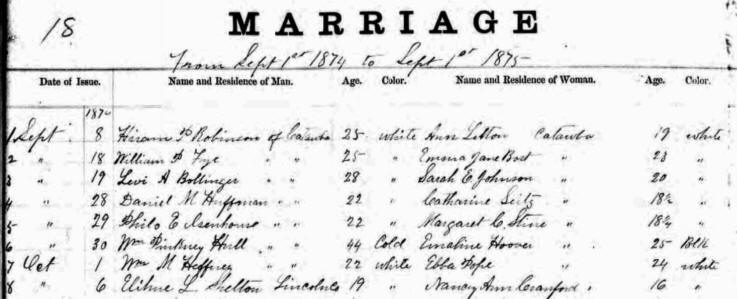 18
MARRIAGE
From Sept 1st 1874 to Sept 1st 1875
Date of Issue. Name and Residence of Man. Age. Color. Name and Residence of Woman. Age. Color.
1874
1 Sept 8 Hiram Robinson of Catawba 25 white Ann Litton Catawba 19 white
2 " 18 William Frye " " 25 " Emma Jane Bost " 23 "
3 " 19 Levi A Bollinger " " 28 " Sarah E Johnson " 20 "
4 " 28 Daniel M Huffman " " 22 " Catharine Seitz " 18½ "
5 " 29 Philo E Isenhouse " " 22 " Margaret C. Stine " 18¾ "
6 " 30 Wm Pinkney Hull " " 44 Cold Emaline Hoover " 25 Blk
7 Oct 1 Wm M Heffner " " 22 white Ebba Pope " 24 white
8 " 6 L Shelton Lincoln 19 " Nancy Ann Cranford " 16 "